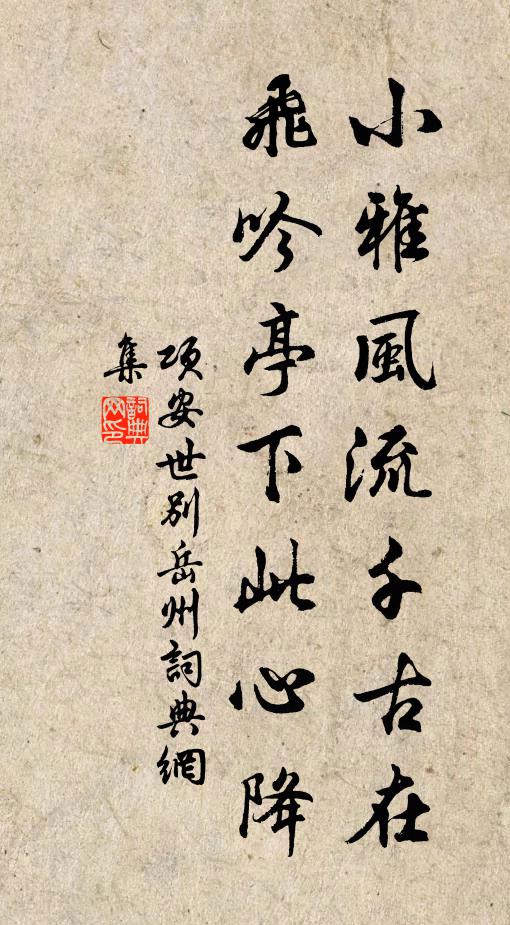 小雅風流千古在
飛吟亭下此心降
項安世別岳州詞典網
集
詞典網印